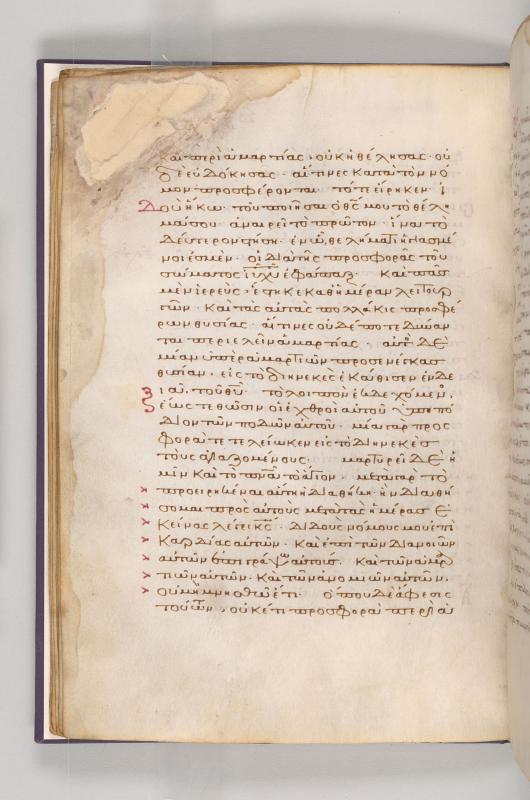 καὶ περὶ ἁμαρτίας, οὐκ ἠθέλησας οὐ
δὲ εὐδόκησας· αἵτινες κατὰ τὸν νό
μον προσφέρονται· τότε εἴρηκεν· ἰ
Δοὺ ἥκω τοῦ ποιῆσαι ὁ θ̅ς̅ μου τὸ θέλη
μά σου· ἀναιρεῖ τὸ πρῶτον· ἵνα τὸ
δεύτερον στήσῃ· ἐν ᾧ θελήματι ἡγιασμέ
νοι ἐσμέν· οἱ διὰ τῆς προσφορᾶς τοῦ
σώματος ι̅υ̅ χ̅υ̅ ἐφάπαξ· Καὶ πᾶς
μὲν ἱερεὺς, ἕστηκε καθ' ἡμέραν λειτουρ
γῶν· καὶ τὰς αὐτὰς πολλάκις προσφέ
ρων θυσίας· αἵτινες οὐδέποτε δύναν
ται περιελεῖν ἁμαρτίας· αὐτὸς δὲ
μίαν ὑπὲρ ἁμαρτιῶν προσενέγκας
θυσίαν, εἰς τὸ διηνεκὲς ἐκάθισεν ἐν δε
ξιᾷ τοῦ θ̅υ̅· τὸ λοιπὸν ἐκδεχόμεν,
ἕως τεθῶσιν οἱ ἐχθροὶ αὐτοῦ ὑποπό
διον τῶν ποδῶν αὐτοῦ· μιᾷ γὰρ προσ
φορᾷ τετελείωκεν εἰς τὸ διηνεκὲς
τοὺς ἁγιαζομένους· μαρτυρεῖ δὲ ἡ
μῖν καὶ τὸ π̅ν̅α̅ τὸ ἅγιον· μετὰ γὰρ τὸ
προειρηκέναι αὕτη ἡ διαθήκη· ἣν διαθή
σομαι πρὸς αὐτοὺς μετὰ τὰς ἡμέρας ἐ
κείνας λέγει κ̅ς̅· διδοὺς νόμους μου ἐπὶ
καρδίας αὐτῶν· καὶ ἐπὶ τῶν διανοιῶν
αὐτῶν ἐπιγράψω αὐτούς· καὶ τῶν ἁμαρ
τιῶν αὐτῶν· καὶ τῶν ἀνομιῶν αὐτῶν,
οὐ μὴ μνησθῶ ἔτι· ὅπου δὲ ἄφεσις
τούτων, οὐκέτι προσφορὰ περὶ ἁ